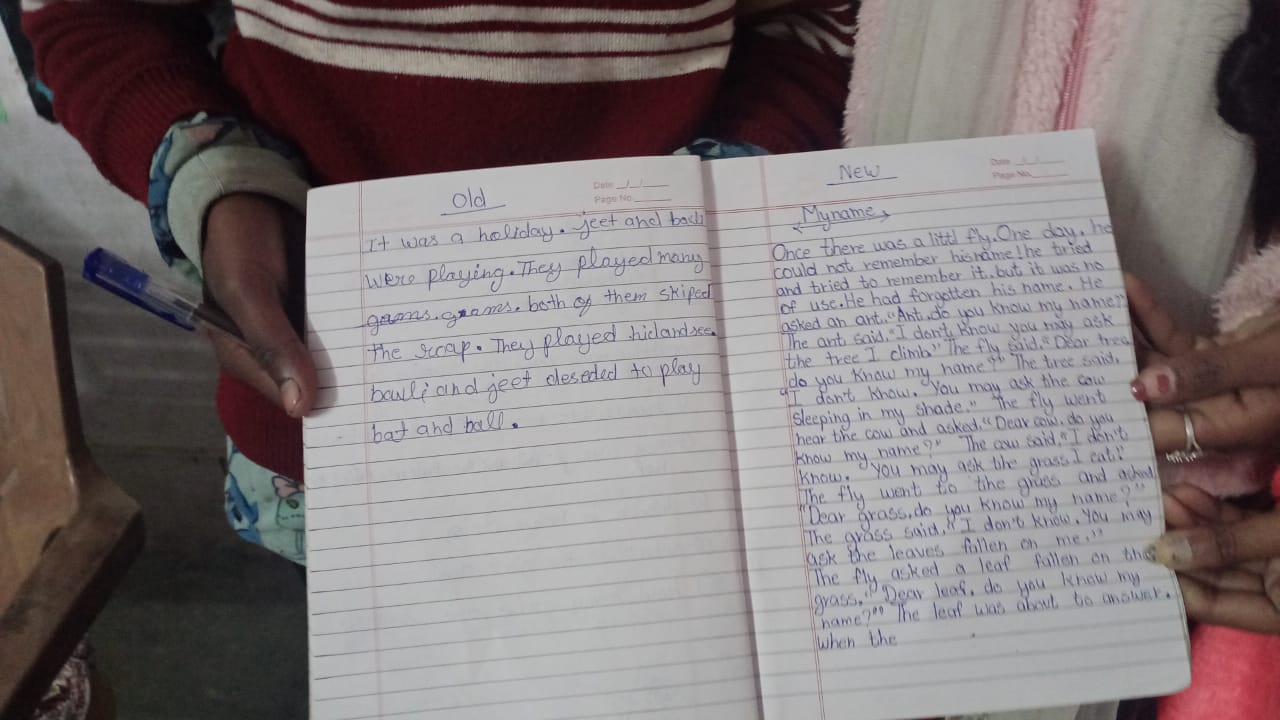 Old
Date __/__/____
Page No.______
It was a holiday. jeet and bauli
were playing. They played many
gams. grams. both of them skiped
the rrap. They played hidandsee.
bauli and jeet deseded to play
bat and ball.
New
Date __/__/____
Page No.______
Myname
Once there was a littl fly. One day. he
could not remember his name! he tried
and tried to remember it. but it was no
of use. He had forgotten his name. He
asked an ant. "Ant. do you know my name?
The ant said. "I don't know you may ask
the tree I climb." The fly said. "Dear tree
do you know my name?" The tree said.
"I don't know. You may ask the cow
sleeping in my shade." The fly went
near the cow and asked. "Dear cow. do you
know my name?" The cow said. "I don't
know. You may ask the grass I eat."
The fly went to the grass and asked
"Dear grass. do you know my name?"
The grass said. "I don't know. You may
ask the leaves fallen on me."
The fly asked a leaf fallen on the
grass. "Dear leaf. do you know my
name?" The leaf was about to answer.
when the